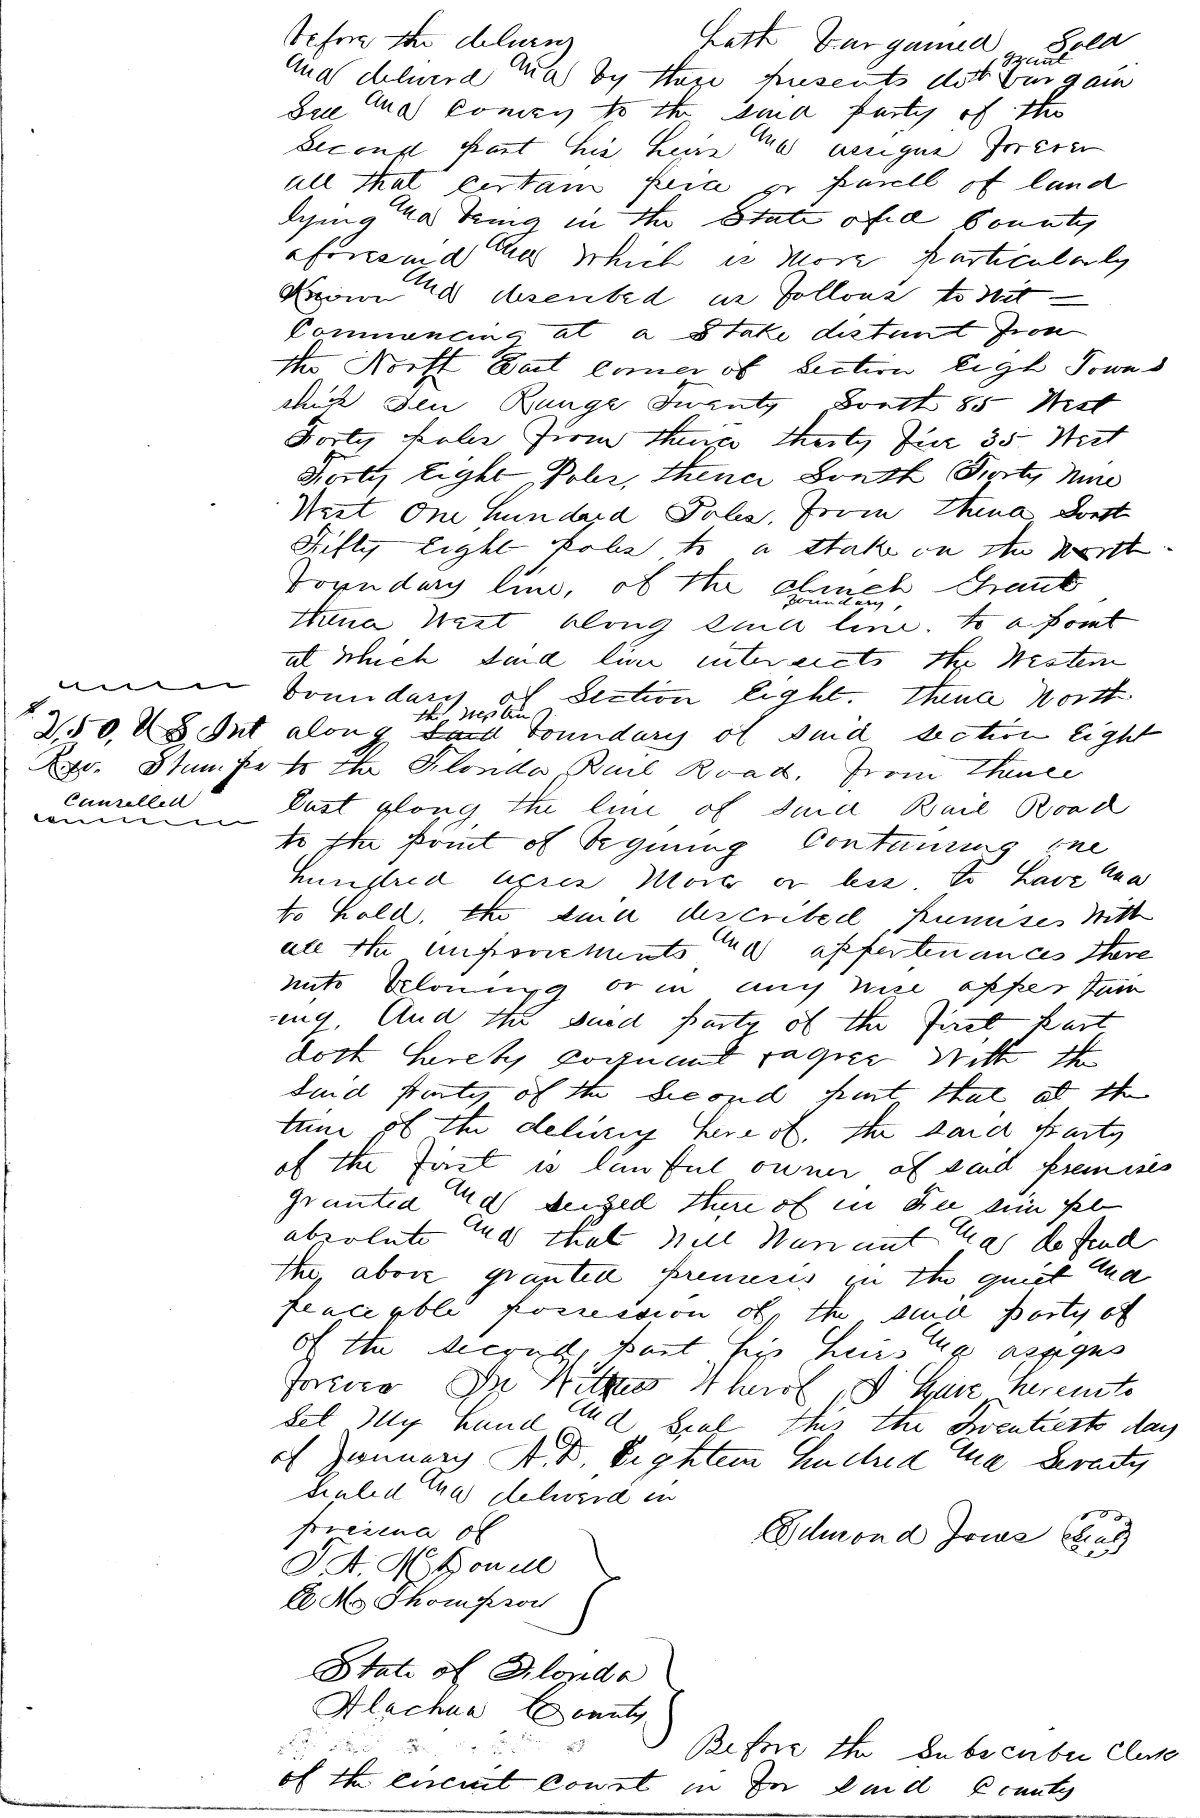 before the delivery hath bargained Sold
and deliverd and by these presents doth grant bargain
Sell and convey to the said party of the
Second part his heirs and assigns forever
all that certain peice or parcell of land
lying and being in the State and County
aforesaid and which is More particularly
Known and described as follows to wit —
Commencing at a Stake distant from
the North East corner of Section Eigh Towns
ship Ten Range Twenty South 85 West
Forty poles from thence thirty five 35 West
Forty Eight Poles, thence South Forty Nine
West One hundard Poles. from thence South
Fifty Eight poles to a stake on the North
boundary line, of the Clinch Grant
thence West along said boundary line. to a point
at which said line intersects the Western
boundary of Section Eight. thence North
along the Western said boundary of said section Eight
to the Florida Rail Road. from thence
East along the line of said Rail Road
to the point of begining Containing one
hundred acres More or less. to have and
to hold. the said described premises with
all the improvements and appertenances there
unto beloning or in any wise appertain
-ing. And the said party of the first part
doth hereby covenant & agree With the
said party of the second part that at the
time of the delivery here of. the said party
of the first is lawful owner of said premises
granted and seized there of in Fee simple
absolute and that Will Warrant and defend
the above granted premesis in the quiet and
peaceable possession of the said party of
of the second part his heirs and assigns
forever In Witness Wherof, I have hereunto
set My hand and seal this the Twentieth day
of January A.D. Eighteen hudred and Seventy
Sealed and deliverd in
presence of
Edmond Jones (Seal)
J. A. McDonell
E M Thompson
2,50, U S Int
Rev. Stamps
Cancelled
State of Florida
Alachua County
Before the Subscriber Clerk
of the circuit court in for said County